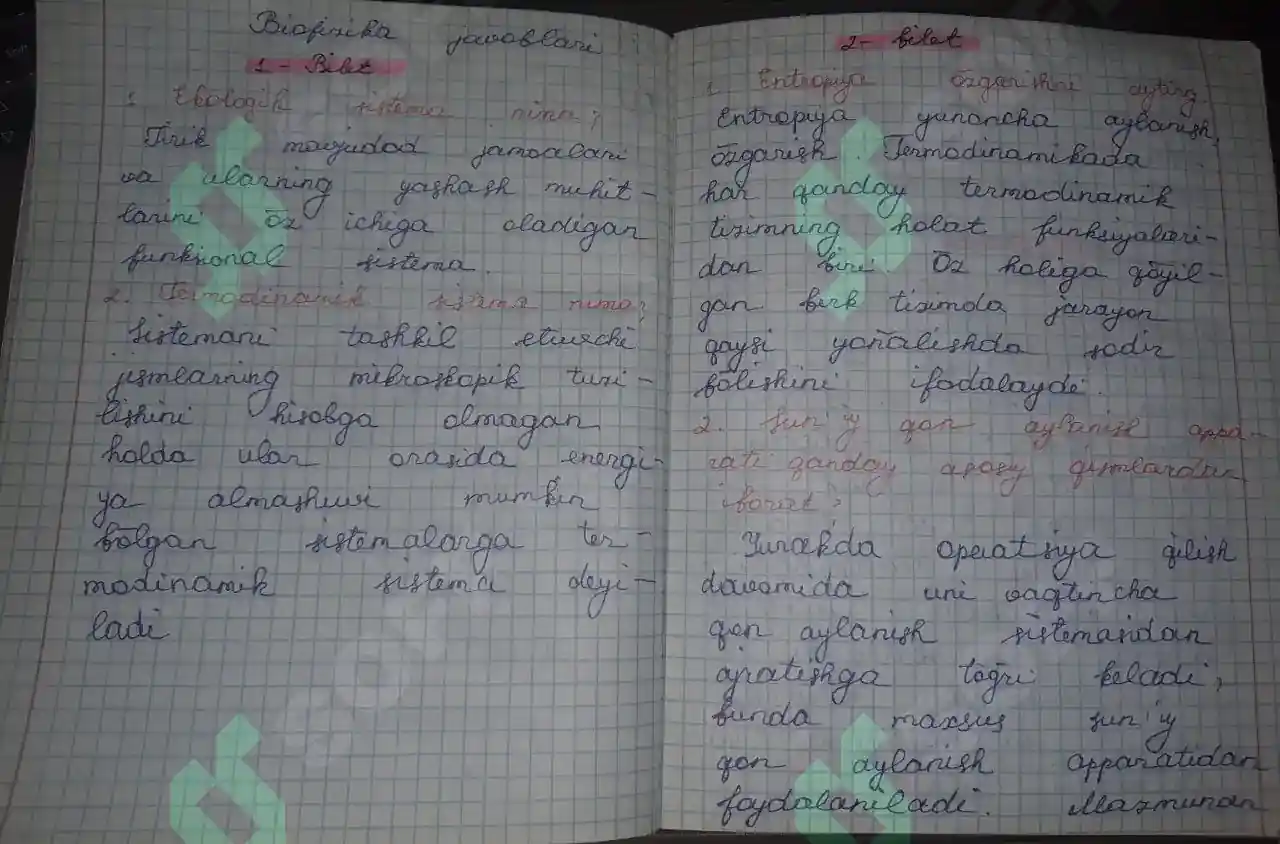 Biofizika javoblari
1 - Bilet
1. Ekologik sistema nima?
Tirik mavjudod jamoalari
va ularning yashash muhit-
larini ōz ichiga oladigan
funksional sistema.
2. Termodinamik sistema nima?
Sistemani tashkil etuvchi
jismlarning mikroskopik tuzi-
lishini hisobga olmagan
holda ular orasida energi-
ya almashuvi mumkin
bōlgan sistemalarga ter-
modinamik sistema deyi-
ladi
2- bilet
1. Entropiya ōzgarishini ayting.
Entropiya yunoncha aylanish,
ōzgarish. Termodinamikada
har qanday termodinamik
tizimning holat funksiyalari-
dan biri. Ōz holiga qōyil-
gan berk tizimda jarayon
qaysi yōnalishda sodir
bōlishini ifodalaydi.
2. Sun'iy qon aylanish appa-
rati qanday asosiy qismlardan
iborat?
Yurakda operatsiya qilish
davomida uni vaqtincha
qon aylanish sistemasidan
ajratishga tōğri keladi,
bunda maxsus sun'iy
qon aylanish apparatidan
foydalaniladi. Mazmunan